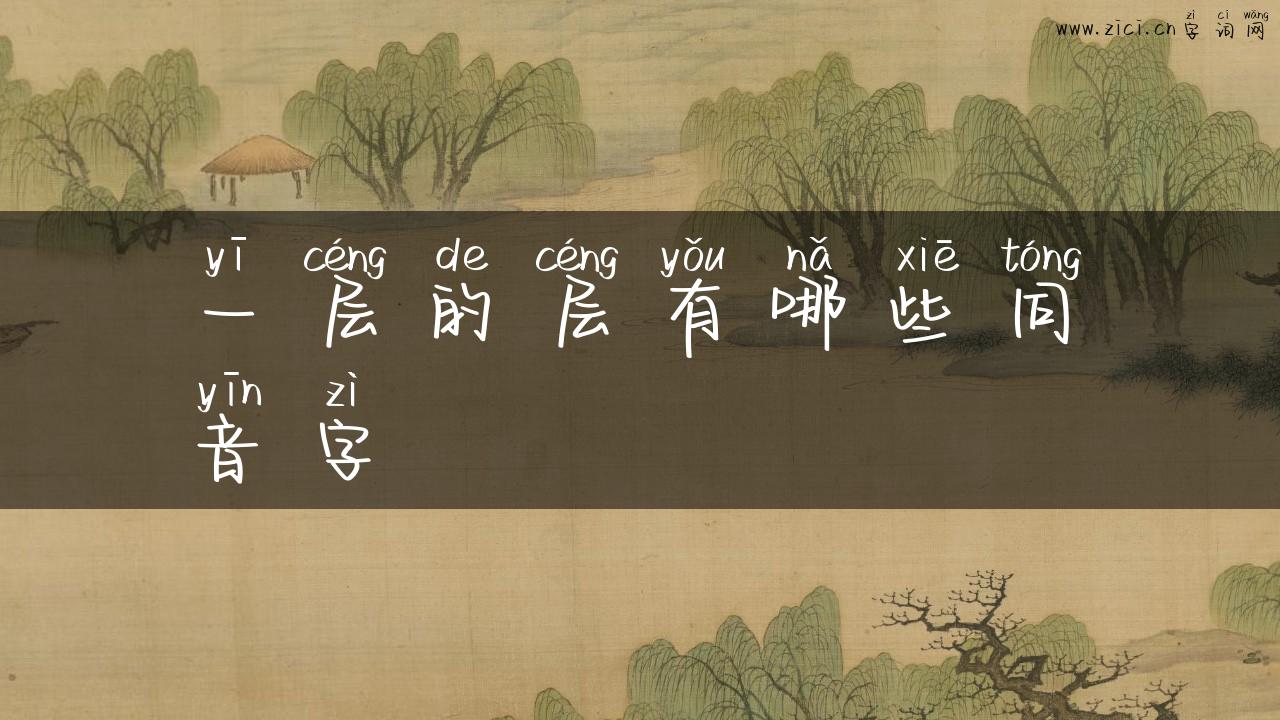 zì cí wǎng
www.zici.cn 字 词 网
yī céng de céng yǒu nǎ xiē tóng
一 层 的 层 有 哪 些 同
yīn zì
音 字